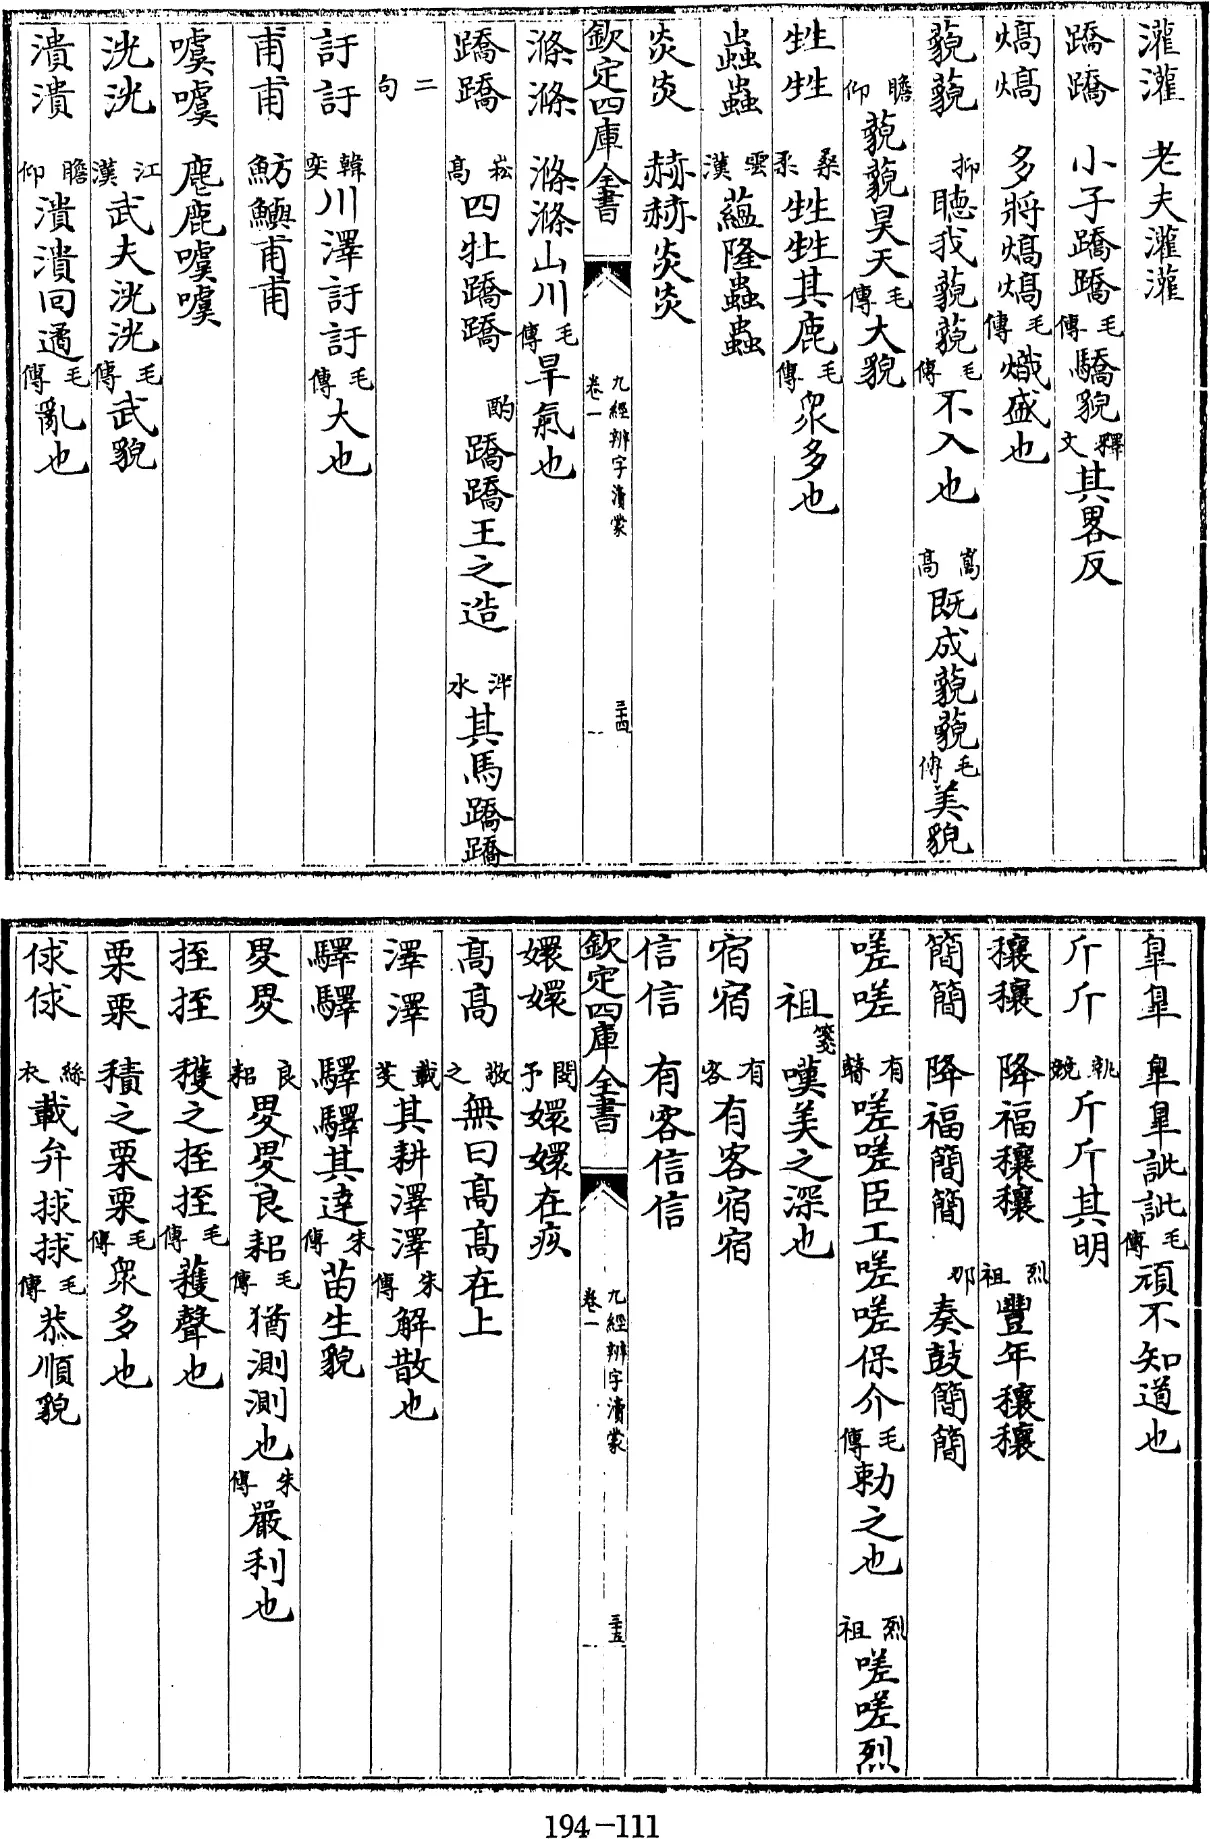 灌灌 老夫灌灌
蹻蹻 小子蹻蹻毛傳驕貌釋文其畧反
熇熇 多將熇熇毛傳熾盛也
藐藐 抑聽我藐藐毛傳不入也 嵩高既成藐藐毛傳美貌
瞻仰藐藐昊天毛傳大貌
甡甡 桑柔甡甡其鹿毛傳衆多也
蟲蟲 雲漢蘊隆蟲蟲
炎炎 赫赫炎炎
欽定四庫全書 九經辨字瀆蒙 卷一 三十四
滌滌 滌滌山川毛傳旱氣也
蹻蹻 崧高四牡蹻蹻 酌蹻蹻王之造 泮水其馬蹻蹻
二句
訏訏 韓奕川澤訏訏毛傳大也
甫甫 魴鱮甫甫
噳噳 麀鹿噳噳
洸洸 江漢武夫洸洸毛傳武貌
潰潰 瞻仰潰潰回遹毛傳亂也
臯臯 臯臯訿訿毛傳頑不知道也
斤斤 執競斤斤其明
穰穰 降福穰穰 烈祖豐年穰穰
簡簡 降福簡簡 那奏鼓簡簡
嗟嗟 有瞽嗟嗟臣工嗟嗟保介毛傳勅之也 烈祖嗟嗟烈
祖箋嘆美之深也
宿宿 有客有客宿宿
信信 有客信信
欽定四庫全書 九經辨字瀆蒙 卷一 三十五
嬛嬛 閔予嬛嬛在疚
高高 敬之無曰高高在上
澤澤 載芟其耕澤澤朱傳解散也
驛驛 驛驛其達朱傳苗生貌
畟畟 良耜畟畟良耜毛傳猶測測也朱傳嚴利也
挃挃 穫之挃挃毛傳穫聲也
栗栗 積之栗栗毛傳衆多也
俅俅 絲衣載弁俅俅毛傳恭順貌
194-111